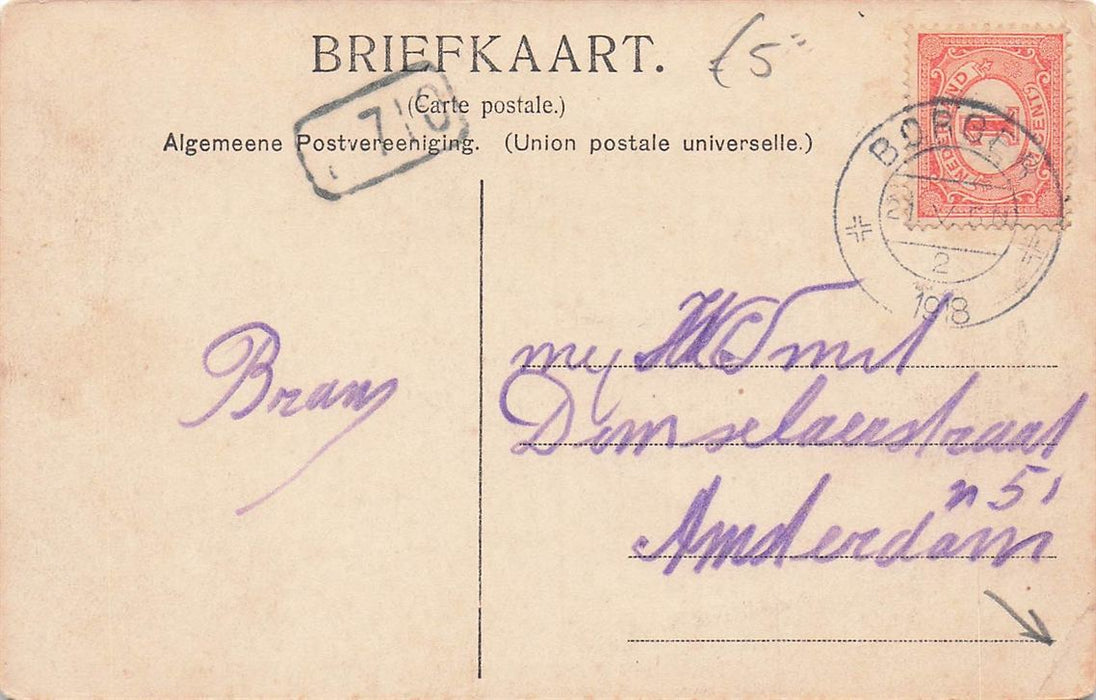 BRIEFKAART.
(Carte postale.)
Algemeene Postvereeniging. (Union postale universelle.)
£5=
710
NEDERLAND
1 CENT
BORGER
2
1918
Bram
W Smit
Domselaerstraat
n 51
Amsterdam